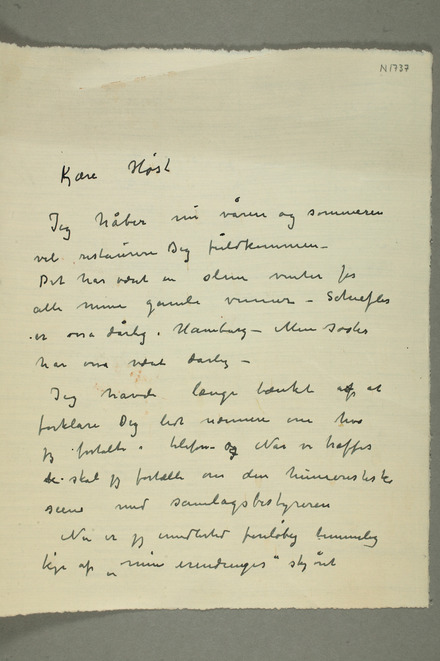 N1737
Kjære Høst
Jeg håber nu våren og sommeren
vil restaurere Dig fuldkommen –
Det har været en slem vinter for
alle mine gamle venner – Schiefler
er osså dårlig i Hamburg – Min søster
har osså vært dårlig –
Jeg havde længe tænkt at
forklare Dig lidt nærmere om hva
jeg fortalte i telefon Når vi træffes
skal jeg fortælle om den humoristiske
scene med samlagsbestyreren
Nu er jeg imidlertid foreløbig temmelig
kjed af „mine erindringer"